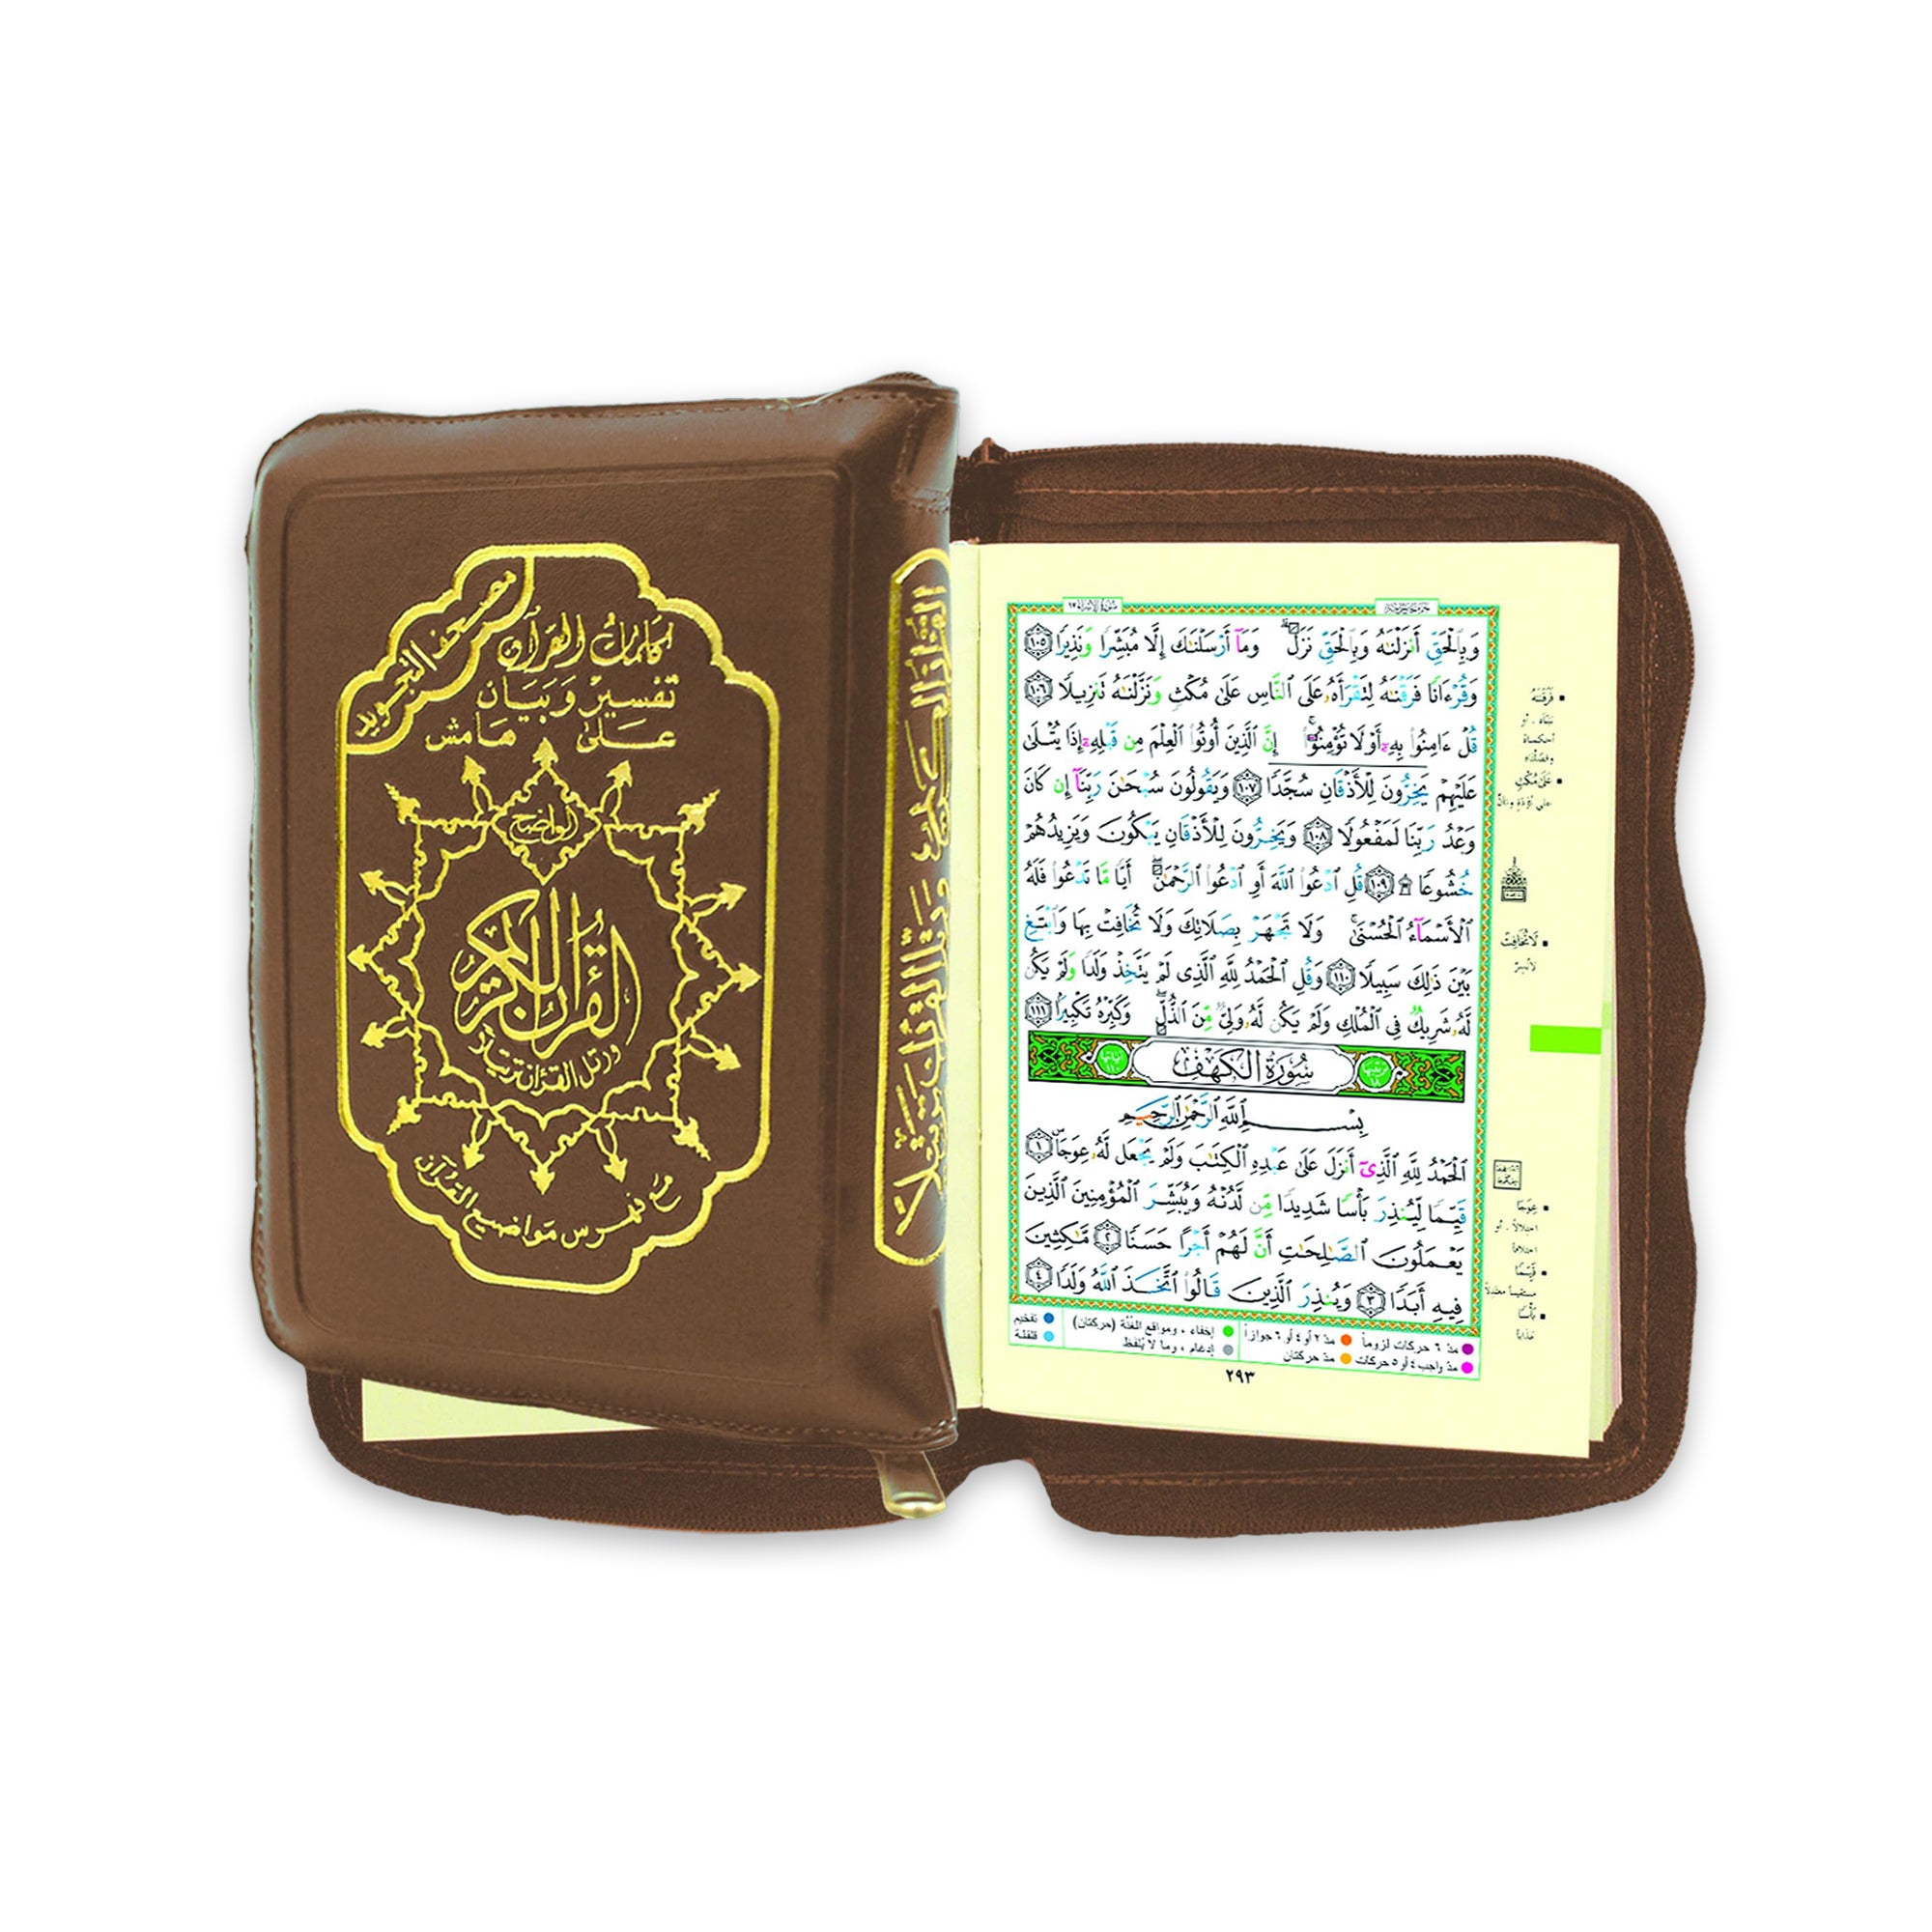 مصحف التجويد
كلمات القرآن
تفسير وبيان
على هامش
الواضح
القرآن الكريم
ورتل القرآن ترتيلا
مع فهرس مواضيع القرآن
القرآن الكريم ورتل القرآن ترتيلا
وَبِٱلْحَقِّ أَنزَلْنَٰهُ وَبِٱلْحَقِّ نَزَلَ وَمَآ أَرْسَلْنَٰكَ إِلَّا مُبَشِّرًا وَنَذِيرًا ١٠٥
وَقُرْءَانًا فَرَقْنَٰهُ لِتَقْرَأَهُۥ عَلَى ٱلنَّاسِ عَلَىٰ مُكْثٍ وَنَزَّلْنَٰهُ تَنزِيلًا ١٠٦
قُلْ ءَامِنُوا۟ بِهِۦٓ أَوْ لَا تُؤْمِنُوٓا۟ إِنَّ ٱلَّذِينَ أُوتُوا۟ ٱلْعِلْمَ مِن قَبْلِهِۦٓ إِذَا يُتْلَىٰ
عَلَيْهِمْ يَخِرُّونَ لِلْأَذْقَانِ سُجَّدًا ١٠٧ وَيَقُولُونَ سُبْحَٰنَ رَبِّنَآ إِن كَانَ
وَعْدُ رَبِّنَا لَمَفْعُولًا ١٠٨ وَيَخِرُّونَ لِلْأَذْقَانِ يَبْكُونَ وَيَزِيدُهُمْ
خُشُوعًا ۩ ١٠٩ قُلِ ٱدْعُوا۟ ٱللَّهَ أَوِ ٱدْعُوا۟ ٱلرَّحْمَٰنَ أَيًّا مَّا تَدْعُوا۟ فَلَهُ
ٱلْأَسْمَآءُ ٱلْحُسْنَىٰ وَلَا تَجْهَرْ بِصَلَاتِكَ وَلَا تُخَافِتْ بِهَا وَٱبْتَغِ
بَيْنَ ذَٰلِكَ سَبِيلًا ١١٠ وَقُلِ ٱلْحَمْدُ لِلَّهِ ٱلَّذِى لَمْ يَتَّخِذْ وَلَدًا وَلَمْ يَكُن
لَّهُۥ شَرِيكٌ فِى ٱلْمُلْكِ وَلَمْ يَكُن لَّهُۥ وَلِىٌّ مِّنَ ٱلذُّلِّ وَكَبِّرْهُ تَكْبِيرًا ١١١
سُورَةُ الكَهْفِ
بِسْمِ ٱللَّهِ ٱلرَّحْمَٰنِ ٱلرَّحِيمِ
ٱلْحَمْدُ لِلَّهِ ٱلَّذِىٓ أَنزَلَ عَلَىٰ عَبْدِهِ ٱلْكِتَٰبَ وَلَمْ يَجْعَل لَّهُۥ عِوَجَا ١
قَيِّمًا لِّيُنذِرَ بَأْسًا شَدِيدًا مِّن لَّدُنْهُ وَيُبَشِّرَ ٱلْمُؤْمِنِينَ ٱلَّذِينَ
يَعْمَلُونَ ٱلصَّٰلِحَٰتِ أَنَّ لَهُمْ أَجْرًا حَسَنًا ٢ مَّٰكِثِينَ
فِيهِ أَبَدًا ٣ وَيُنذِرَ ٱلَّذِينَ قَالُوا۟ ٱتَّخَذَ ٱللَّهُ وَلَدًا ٤
مدّ ٦ حركات لزوماً مدّ ٢ أو ٤ أو ٦ جوازاً إخفاء ، ومواقع الغُنَّة (حركتان) تفخيم
مدّ واجب ٤ أو ٥ حركات مدّ حركتان إدغام ، وما لا يُلفَظ قلقلة
٢٩٣
فَرَقْنَاهُ
عَلَى مُكْثٍ
لَا تُخَافِتْ
عِوَجًا
قَيِّمًا
بَأْسًا
عذاباً